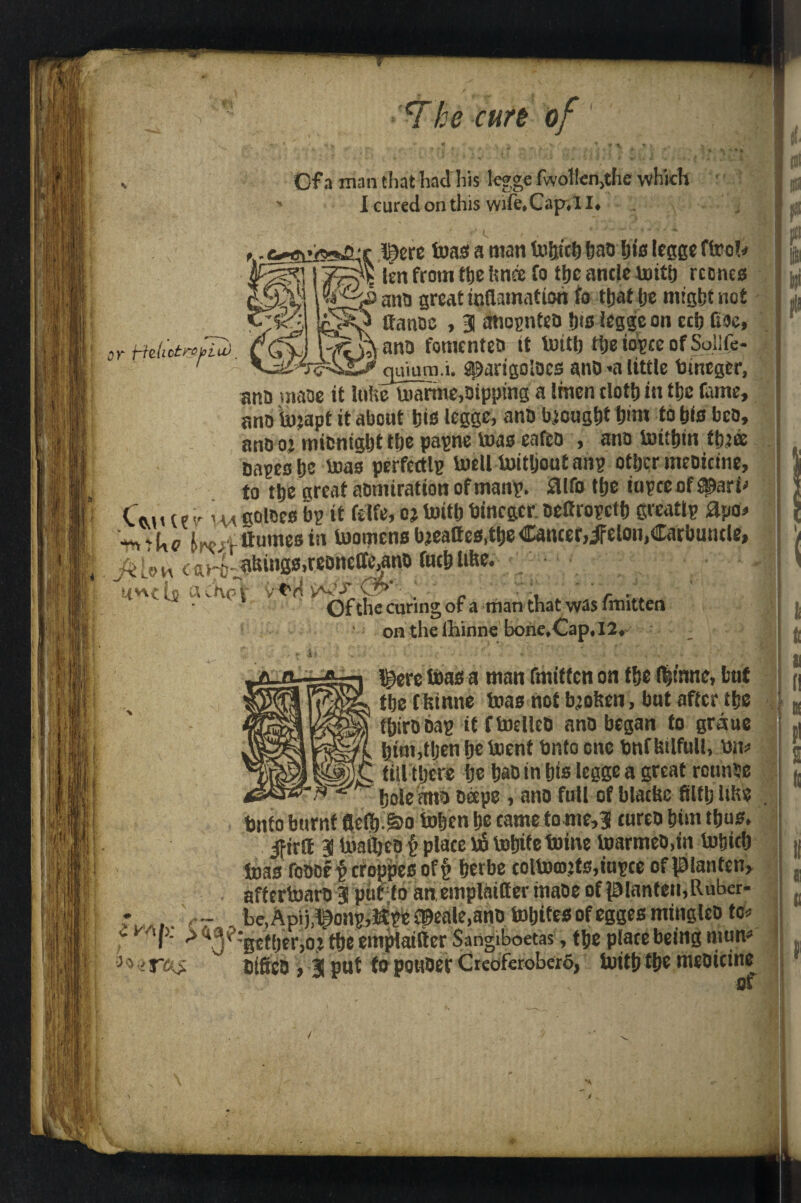 The cure of
Of a man that had his legge swollen, the which
I cured on this wife. Cap. 11.
Here was a man which had his legge swol-
len from the knée so the ancle with rednes
and great inflamation so that he might not
stande, I anoynted his legge on ech side,
and fomented it with the ioyce of Sollse-
quium .i. Marigoldes and a little vineger,
and made it luke warme, dipping a linen cloth in the same,
and wrapt it about his legge, and brought him to his bed,
and or midnight the payne was eased, and within thrée
dayes he was perfectly well without any other medicine,
to the great admiration of many. Also the iuyce of Mari-
goldes by it selfe, or with vineger destroyeth greatly Apo-
stumes in womens breastes, the Cancer, Felon, Carbuncle,
akings, rednesse, and such like.
or Heliotropiu
Cancer
in the brest
Felon car-
uncls
Of the curing of a man that was smitten
on the shinne bone. Cap. 12.
Here was a man smitten on the shinne, but
the skinne was not broken, but after the
third day it swelled and began to graue
him, then he went vnto one vnskilfull, vn-
till there he had in his legge a great rounde
hole and déepe, and full of blacke filth like
vnto burnt flesh. So when he came to me, I cured him thus.
First I washed yͤ place wͭ white wine warmed, in which
was sodde yͤ croppes of yͤ herbe coltwoorts, iuyce of Planten,
afterward I put to an emplaister made of Planten, Ruber-
be, Apij, Hony, Rye Meale, and whites of egges mingled to-
gether, or the emplaister Sangiboetas, the place being mun-
dified, I put to pouder Creoferoberō, with the medicine
of